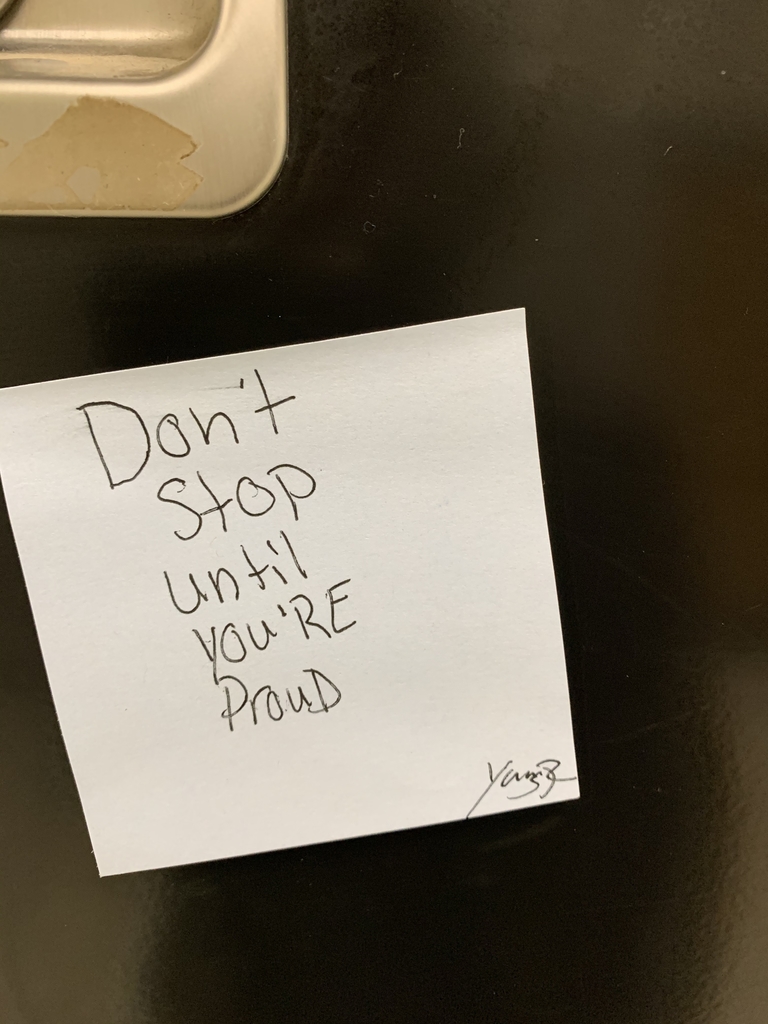 Don't
Stop
until
you'RE
ProuD